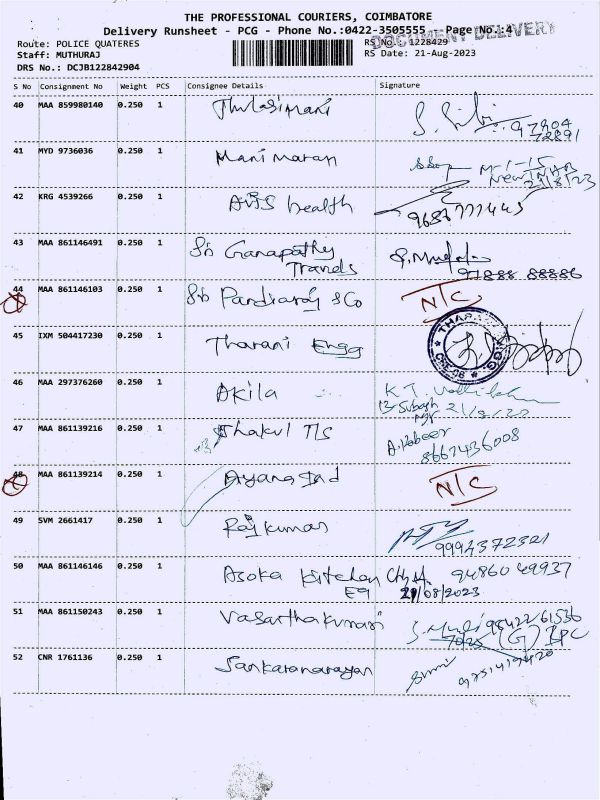 THE PROFESSIONAL COURIERS, COIMBATORE
Delivery Runsheet - PCG - Phone No.:0422-3505555 Page No.:4
DOCUMENT DELIVERY
Route: POLICE QUATERES RS No. : 1228429
Staff: MUTHURAJ RS Date: 21-Aug-2023
DRS No.: DCJB122842904
S No Consignment No Weight PCS Consignee Details Signature
40 MAA 859980140 0.250 1 Thulasimani
97904
72891
41 MYD 9736036 0.250 1 Manimaran M-1-15
21/8/23
42 KRG 4539266 0.250 1 AVJS health 9687777443
43 MAA 861146491 0.250 1 Sri Ganapathy
Travels 97888 88886
44 MAA 861146103 0.250 1 Sri Pandiaraj & Co N/C
45 IXM 504417230 0.250 1 Tharani Engg
CBE-08
46 MAA 297376260 0.250 1 Akila K.T.
21/8/23
47 MAA 861139216 0.250 1 Thakul T/S A.Habeer
8667436008
48 MAA 861139214 0.250 1 Aryana Ind N/C
49 SVM 2661417 0.250 1 Rajkumar
9994372321
50 MAA 861146146 0.250 1 Asoka Kitchen 94860 49937
Eq 21/08/2023
51 MAA 861150243 0.250 1 Vasanthakumari 98422 61536
7025 (G) IPC
52 CNR 1761136 0.250 1 Sankaranarayan
9751419420